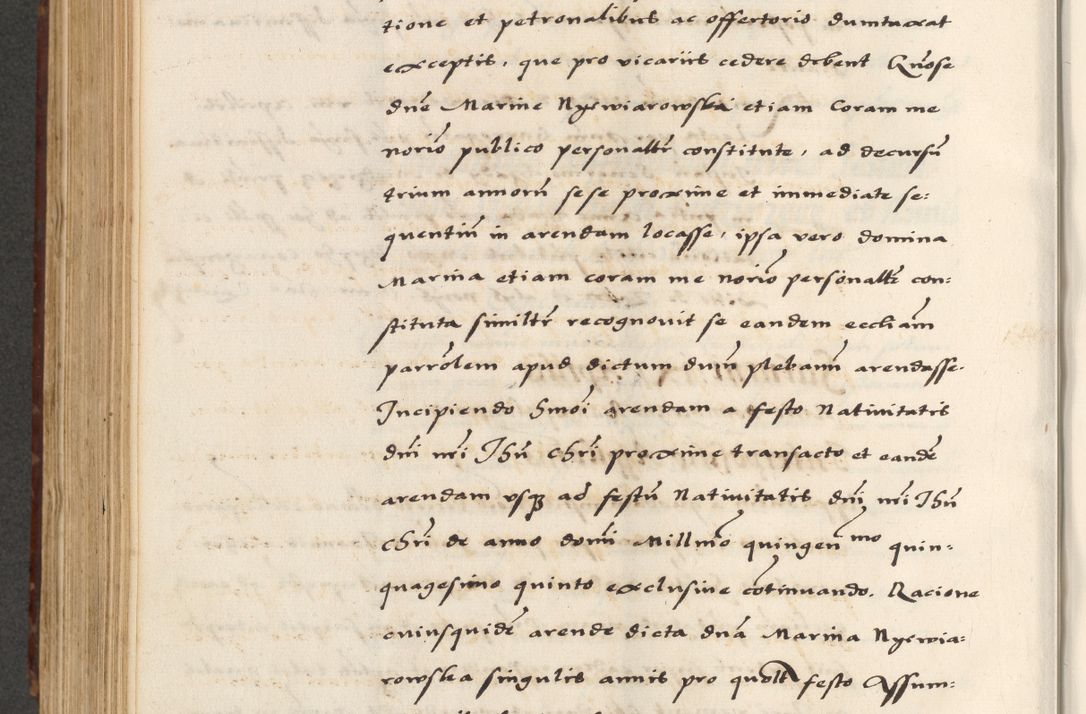 tione et petronalibus ac offertorio dumtaxat
exceptis, que pro vicariis cedere debent Q̃nose
dn̄e Marine Nyewiarowska etiam coram me
norīo publico personalr̄ constitute, ad decursū
trium annorū sese proxime et immediate se:
quentiū in arendam locasse, ipsa vero domina
Marina etiam coram me norīo personalr̄ con:
stituta similr̄ recognovit se eandem eccliam̄
parrōlem apud dictum dnm̄ plebanū arendasse.
Incipiendo hmōi arendam a festo Nativitatis
dnī nrī Ihū Chrī proxime transacto et eandē
arendam vsqȝ ad festū Nativitatis dnī nrī Ihū
Chrī de anno domī Millmō quingenmo quin:
quagesimo quinto exclusive cōtinuando. Racione
cuiusquidē arende dicta dnā Marina Nyewia:
rowska singulis annis pro quolt festo Assum: